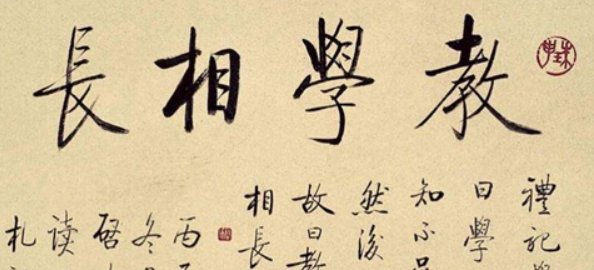 教學相長
禮記學
曰學
知不足
然後
故曰教
相長
丙
冬
啓
读
札